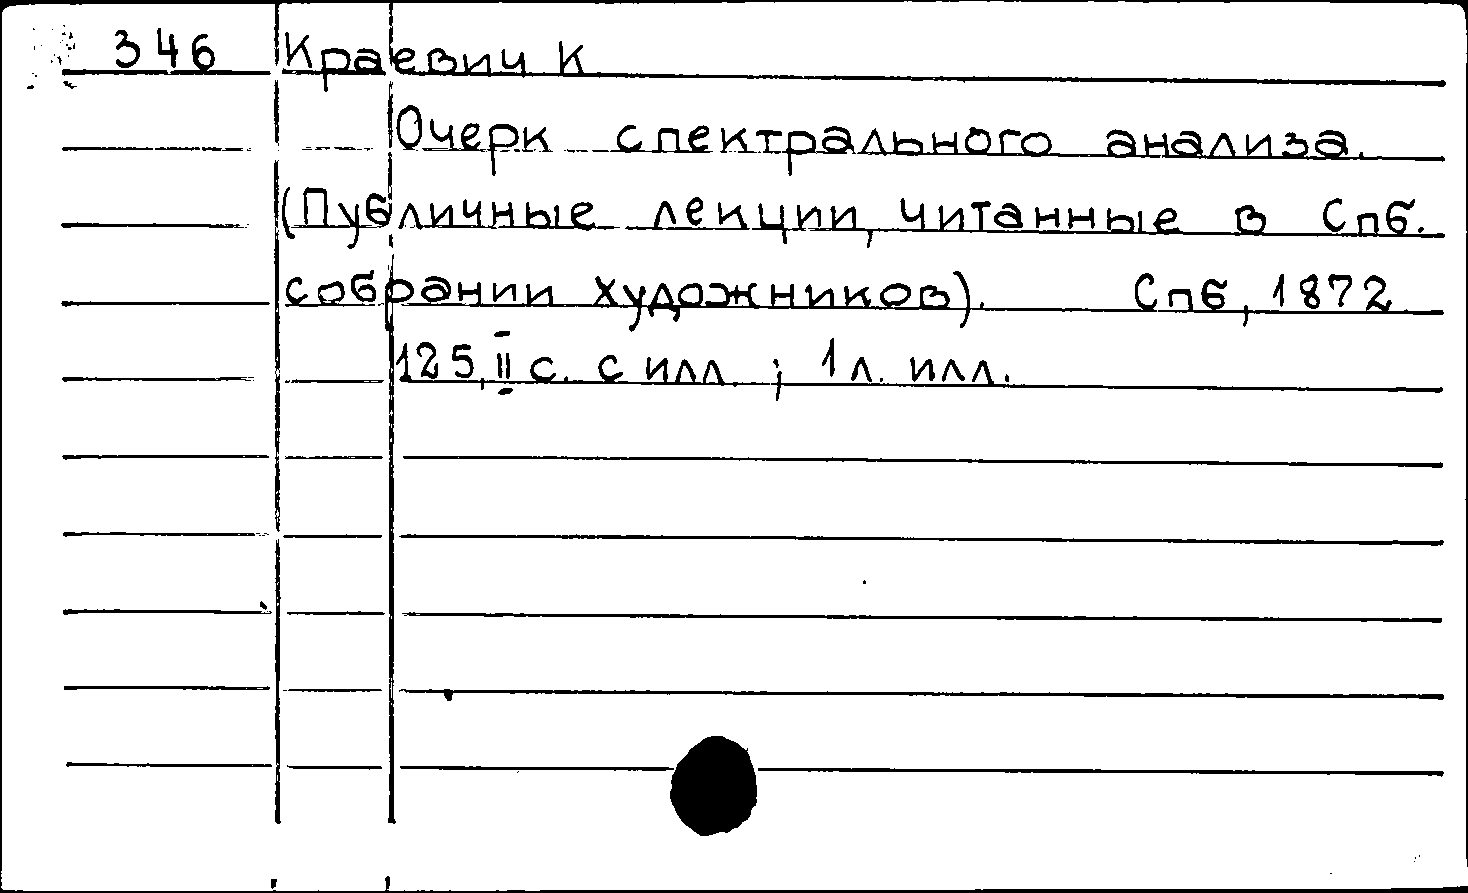 346 Краевич К
Очерк спектрального анализа.
(Публичные лекции, читанные в Спб.
собрании художников). Спб, 1872
125, II с. с илл. ; 1 л. илл.